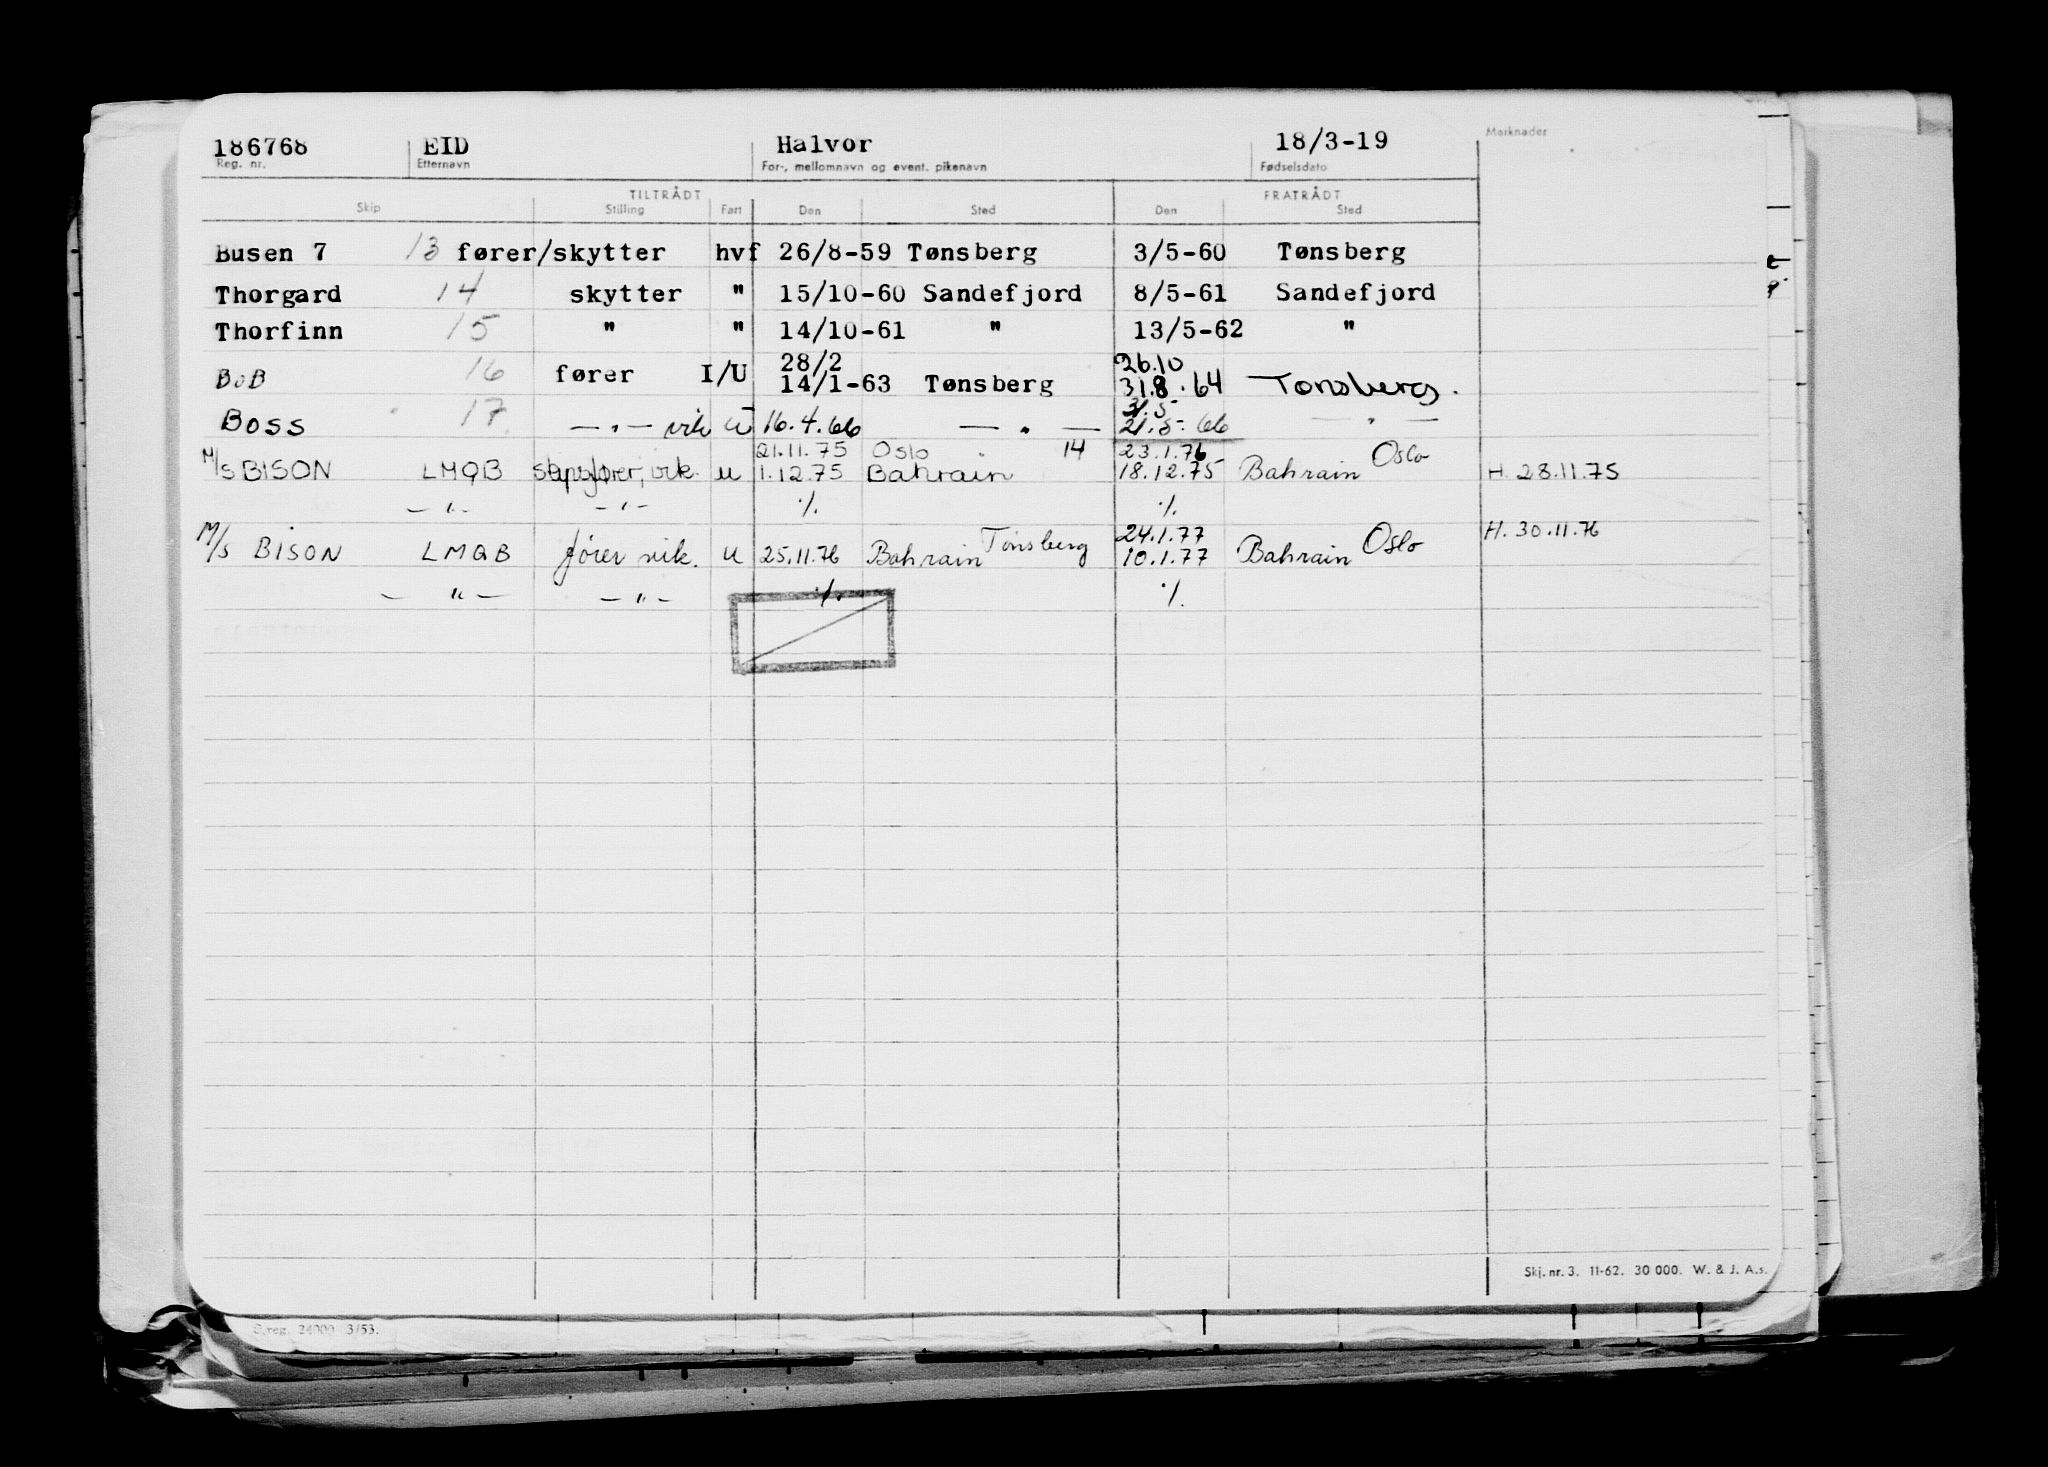 186768 EID Halvor 18/3-19 Merknader
Reg. nr. Etternavn For-, mellomnavn og event. pikenavn Fødselsdato
TILTRÅDT FRATRÅDT
Skip Stilling Fart Den Sted Den Sted
Busen 7 13 fører/skytter hvf 26/8-59 Tønsberg 3/5-60 Tønsberg
Thorgard 14 skytter " 15/10-60 Sandefjord 8/5-61 Sandefjord
Thorfinn 15 " " 14/10-61 " 13/5-62 "
28/2 26.10
BoB 16 fører I/U 14/1-63 Tønsberg 31.8.64 Tønsberg.
31.5
Boss 17 — " — vik U 16.4.66 — " — 21.5.66 — " —
21.11.75 Oslo 14 23.1.76 Oslo
M/S BISON LMQB skipsfører, vik. u 1.12.75 Bahrain 18.12.75 Bahrain H. 28.11.75
— " — — " — ·/. ·/.
Tønsberg 24.1.77 Oslo H. 30.11.76
M/S BISON LMQB fører vik. u 25.11.76 Bahrain 10.1.77 Bahrain
— " — — " — ·/. ·/.
Skj. nr. 3. 11-62. 30 000. W. & J. A.s.
S.reg. 24000 3/53.